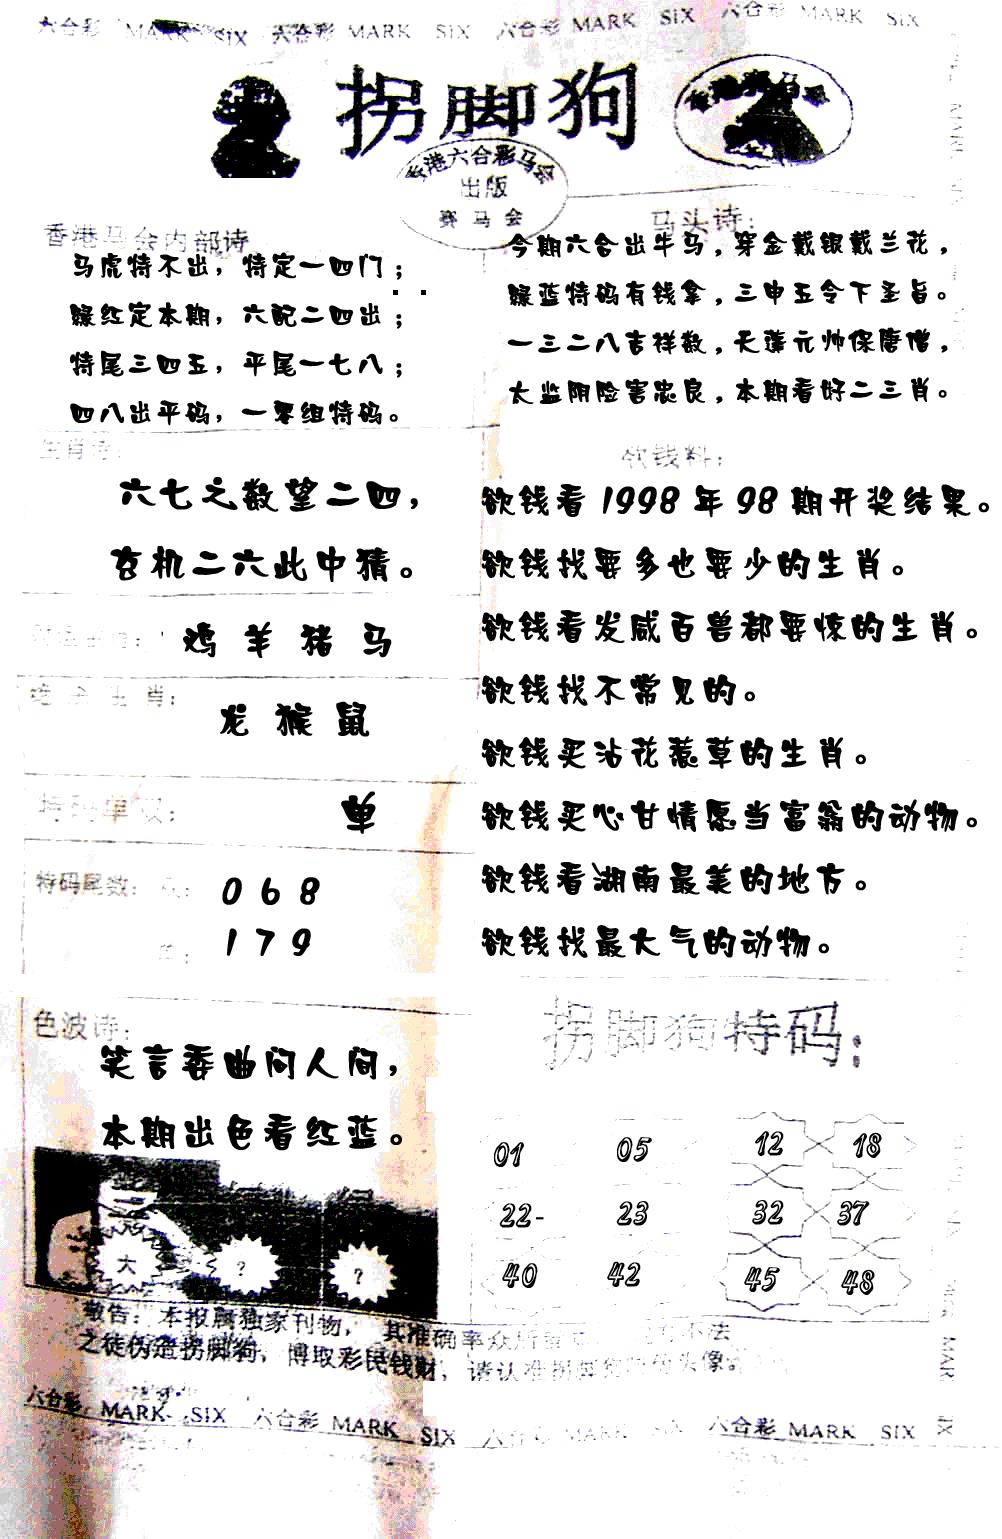 六合彩 MARK SIX 六合彩 MARK SIX 六合彩 MARK SIX 六合彩 MARK SIX
拐脚狗
香港六合彩马会
出版
赛马会
香港马会内部诗
马虎特不出，特定一四门；
绿红定本期，六配二四出；
特尾三四五，平尾一七八；
四八出平码，一零组特码。
马头诗：
今期六合出牛马，穿金戴银戴兰花，
绿蓝特码有钱拿，三申五令下圣旨。
一三二八吉祥数，天蓬元帅保唐僧，
太监阴险害忠良，本期看好二三肖。
生肖诗：
六七之数望二四，
玄机二六此中猜。
鸡 羊 猪 马
生肖：
龙 猴 鼠
特码单双：
单
特码尾数：
0 6 8
1 7 9
欲钱料：
欲钱看1998年98期开奖结果。
欲钱找要多也要少的生肖。
欲钱看发威百兽都要惊的生肖。
欲钱找不常见的。
欲钱买沾花惹草的生肖。
欲钱买心甘情愿当富翁的动物。
欲钱看湖南最美的地方。
欲钱找最大气的动物。
色波诗：
笑言委曲问人间，
本期出色看红蓝。
大 ？ ？
拐脚狗特码：
01 05 12 18
22- 23 32 37
40 42 45 48
敬告：本报属独家刊物，其准确率众所 不法
之徒伪造拐脚狗，博取彩民钱财，请认准拐脚 头像
六合彩 MARK SIX 六合彩 MARK SIX 六合彩 MARK SIX 六合彩 MARK SIX